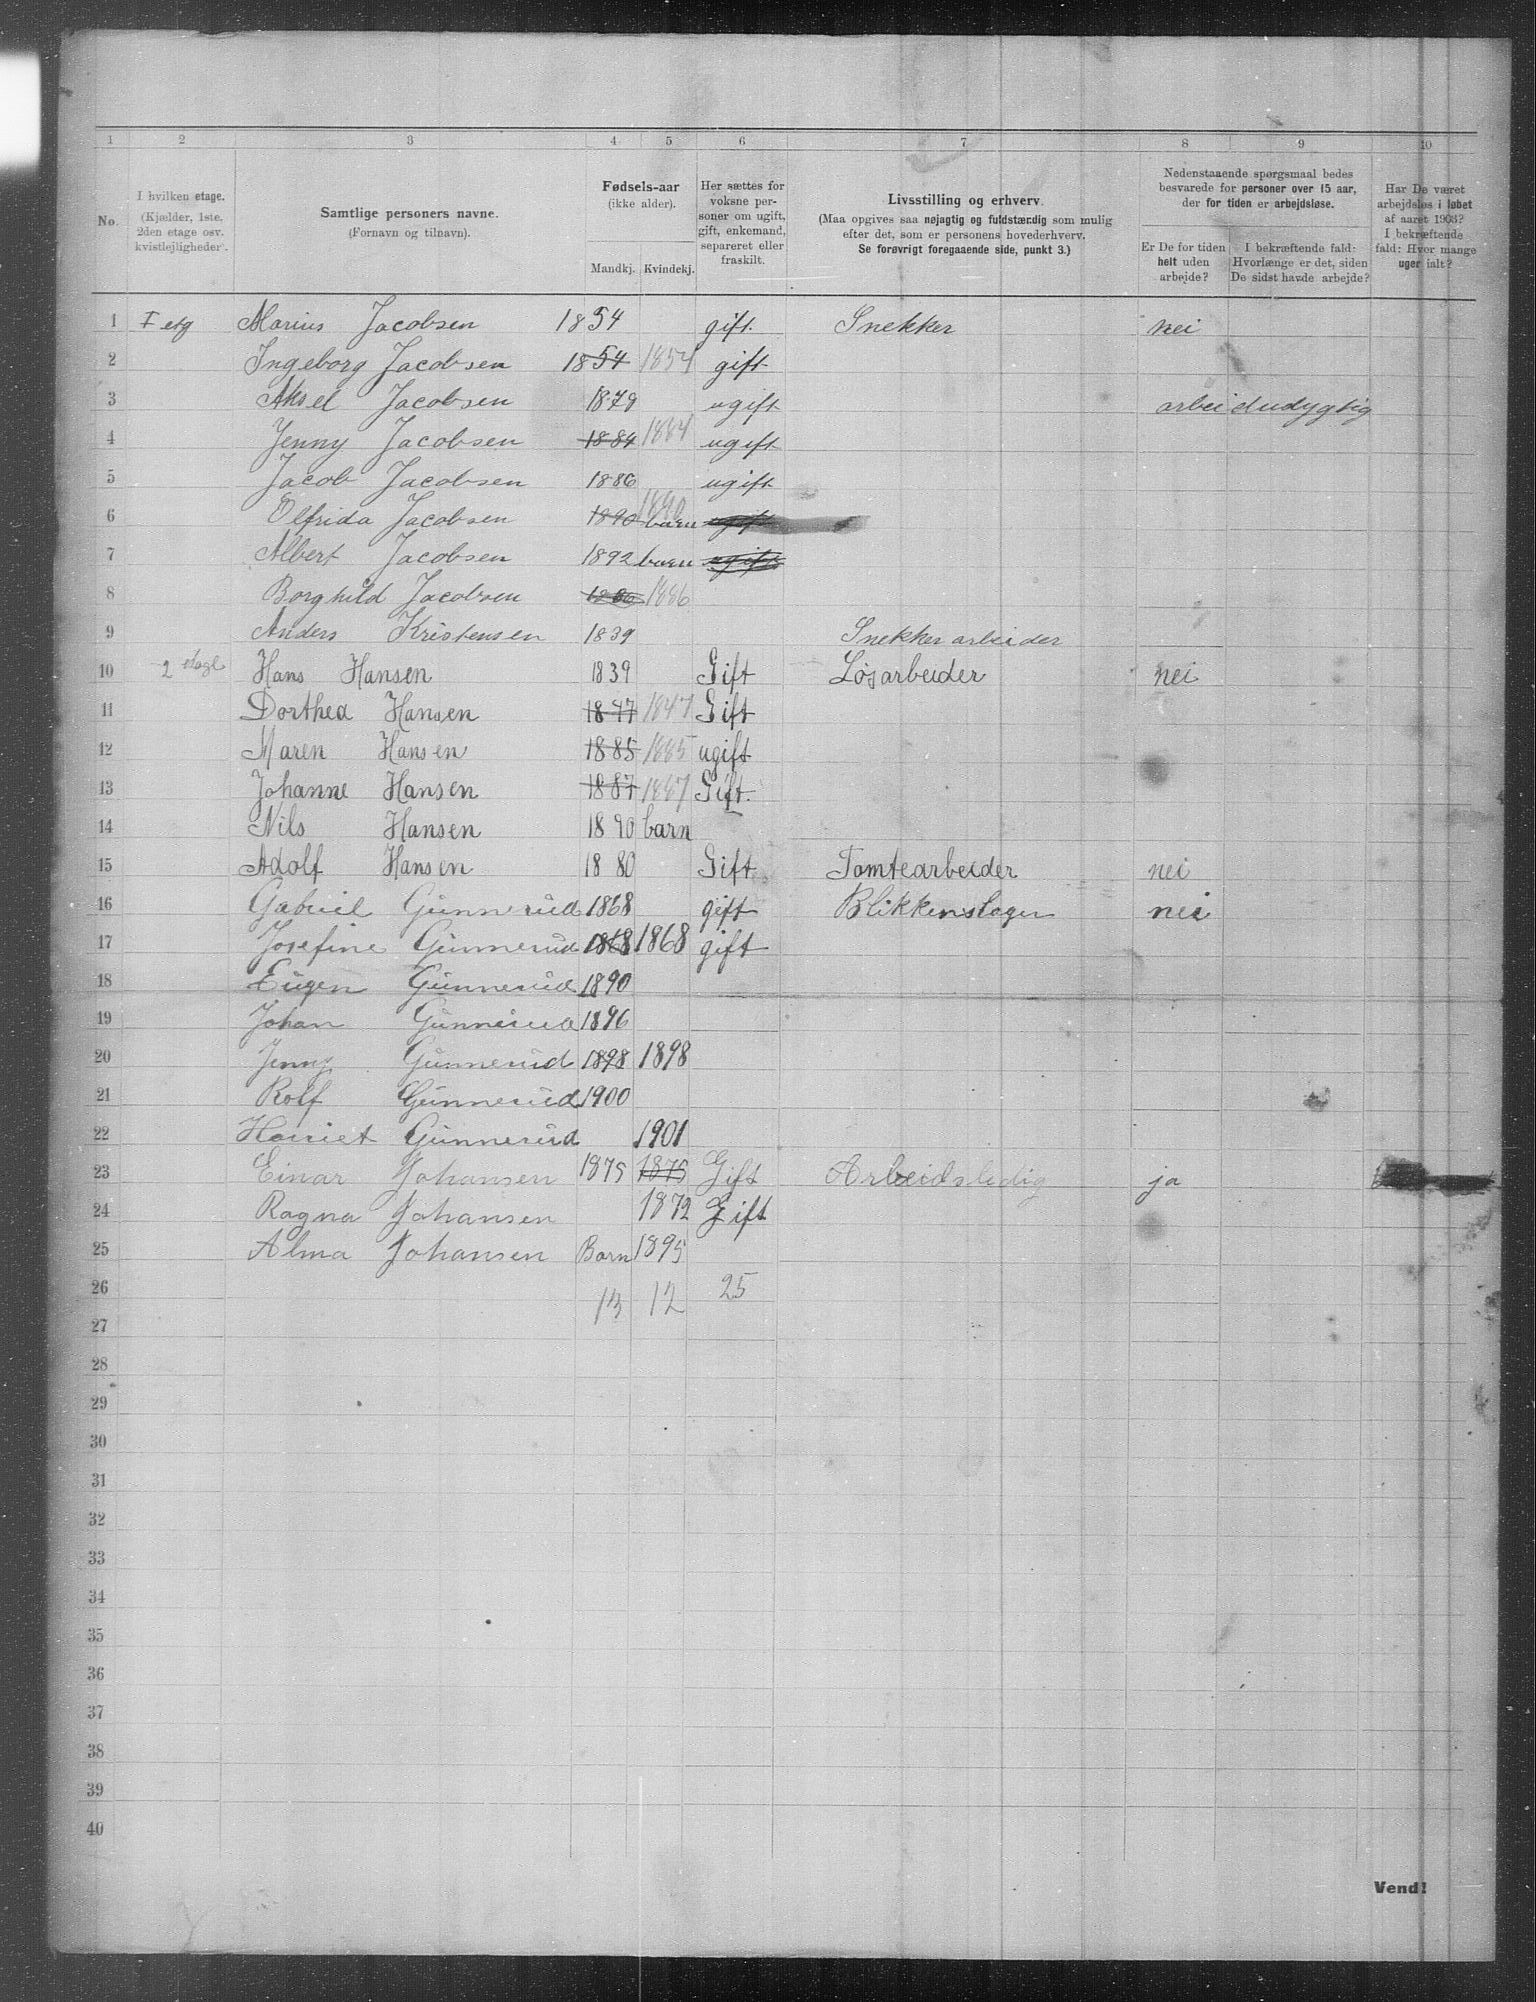 1 2 3 4 5 6 7 8 9 10
No.
I hvilken etage.
(Kjælder, 1ste, 2den etage osv. kvistlejligheder).
Samtlige personers navne.
(Fornavn og tilnavn).
Fødsels-aar
(ikke alder).
Mandkj. Kvindekj.
Her sættes for voksne personer om ugift, gift, enkemand, separeret eller fraskilt.
Livsstilling og erhverv.
(Maa opgives saa nøjagtig og fuldstændig som mulig
efter det, som er personens hovederhverv.
Se forøvrigt foregaaende side, punkt 3.)
Nedenstaaende spørgsmaal bedes
besvarede for personer over 15 aar,
der for tiden er arbejdsløse.
Er De for tiden helt uden arbejde?
I bekræftende fald: Hvorlænge er det, siden De sidst havde arbejde?
Har De været arbejdsløs i løbet af aaret 1903? I bekræftende fald: Hvor mange uger ialt?
1 I etg Marius Jacobsen 1854 gift Snekker nei
2 Ingeborg Jacobsen 1854 1854 gift
3 Aksel Jacobsen 1879 ugift arbeidudygtig
4 Jenny Jacobsen 1884 1884 ugift
5 Jacob Jacobsen 1886 ugift
6 Olfrida Jacobsen 1890 1890 barn ugift
7 Albert Jacobsen 1892 barn ugift
8 Borghild Jacobsen 1886
9 Anders Kristensen 1839 Snekker arbeider
10 2 etage Hans Hansen 1839 Gift Løsarbeider nei
11 Dorthea Hansen 1847 1847 Gift
12 Maren Hansen 1885 1885 ugift
13 Johanne Hansen 1887 1887 Gift.
14 Nils Hansen 1890 barn
15 Adolf Hansen 1880 Gift Tomtearbeider nei
16 Gabriel Gunnerud 1868 gift Blikkenslager nei
17 Josefine Gunnerud 1868 1868 gift
18 Eugen Gunnerud 1890
19 Johan Gunnerud 1896
20 Jenny Gunnerud 1898 1898
21 Rolf Gunnerud 1900
22 Harriet Gunnerud 1901
23 Einar Johansen 1875 1875 Gift Arbeidsledig ja
24 Ragna Johansen 1872 Gift
25 Alma Johansen Barn 1895
26 13 12 25
27
28
29
30
31
32
33
34
35
36
37
38
39
40
Vend!